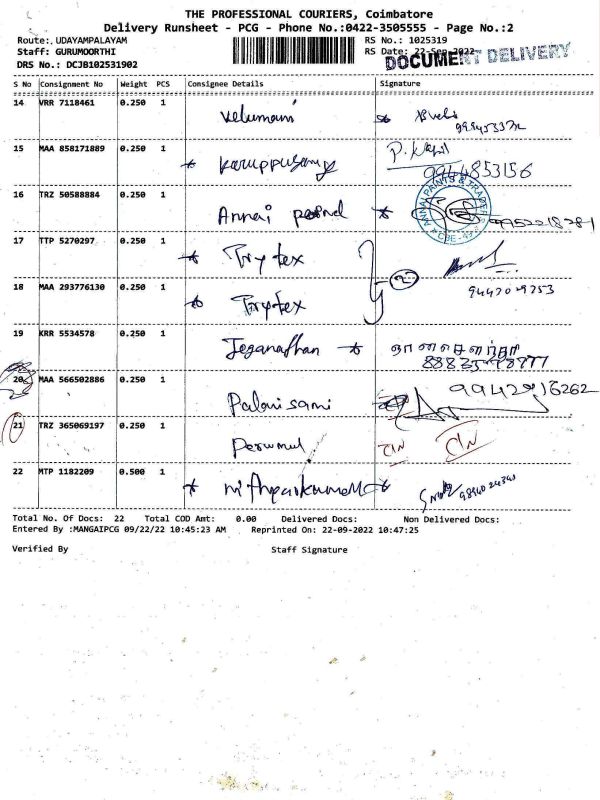 THE PROFESSIONAL COURIERS, Coimbatore
Delivery Runsheet - PCG - Phone No.:0422-3505555 - Page No.:2
Route:. UDAYAMPALAYAM RS No.: 1025319
Staff: GURUMOORTHI RS Date: 22-Sep-2022
DOCUMENT DELIVERY
DRS No.: DCJB102531902
S No Consignment No Weight PCS Consignee Details Signature
14 VRR 7118461 0.250 1 Velumani
15 MAA 858171889 0.250 1 Karuppusamy 9944853156
16 TRZ 50588884 0.250 1 Annai
ANNAI PAINTS & TRADERS
17 TTP 5270297 0.250 1 Trytex 2
18 MAA 293776130 0.250 1 Trytex
19 KRR 5534578 0.250 1 Jeganathan
20 MAA 566502886 0.250 1 Palanisami
21 TRZ 365069197 0.250 1 Perumal C/N C/N
22 MTP 1182209 0.500 1
Total No. Of Docs: 22 Total COD Amt: 0.00 Delivered Docs: Non Delivered Docs:
Entered By :MANGAIPCG 09/22/22 10:45:23 AM Reprinted On: 22-09-2022 10:47:25
Verified By Staff Signature